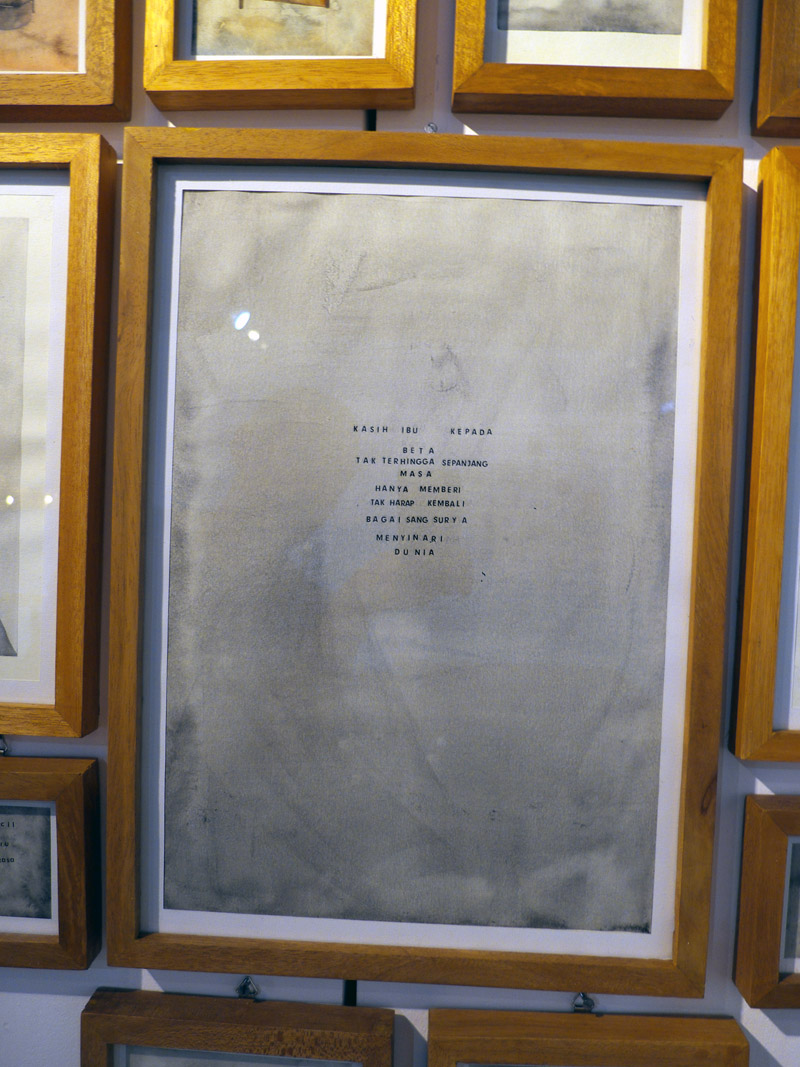 KASIH IBU KEPADA
BETA
TAK TERHINGGA SEPANJANG
MASA
HANYA MEMBERI
TAK HARAP KEMBALI
BAGAI SANG SURYA
MENYINARI
DUNIA